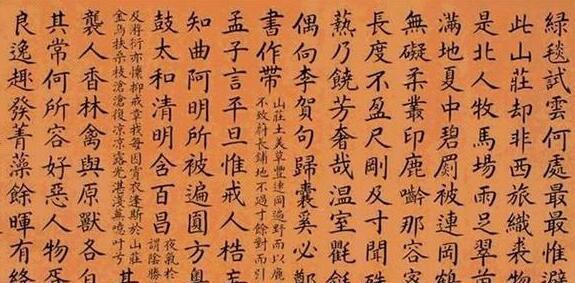 綠毯試雲何處最最惟避
此山莊却非西旅織裘物
是北人牧馬場雨足翠茵
滿地夏中碧罽被連岡鶴
無礙柔叢印鹿那容
長度不盈尺剛及寸聞殊
爇乃饒芳奢哉溫室氍
偶向李賀句歸囊奚必鄭
書作帶
山莊土美草豐連岡遍野而以鹿
不致蔚長鋪地不過寸餘對而引
孟子言平旦惟戒人梏
知曲阿明所被遍圓方
鼓太和清明含百昌
夜氣於
謂陰勝
及游衍亦懷抑戒章我每因宵衣逢斯於山莊
金烏扶桑枝滄滄復凉凉露光湛淺叶兮
襲人香林禽與原獸各自
其常何所容好惡人物
良逸趣發菁藻餘暉有